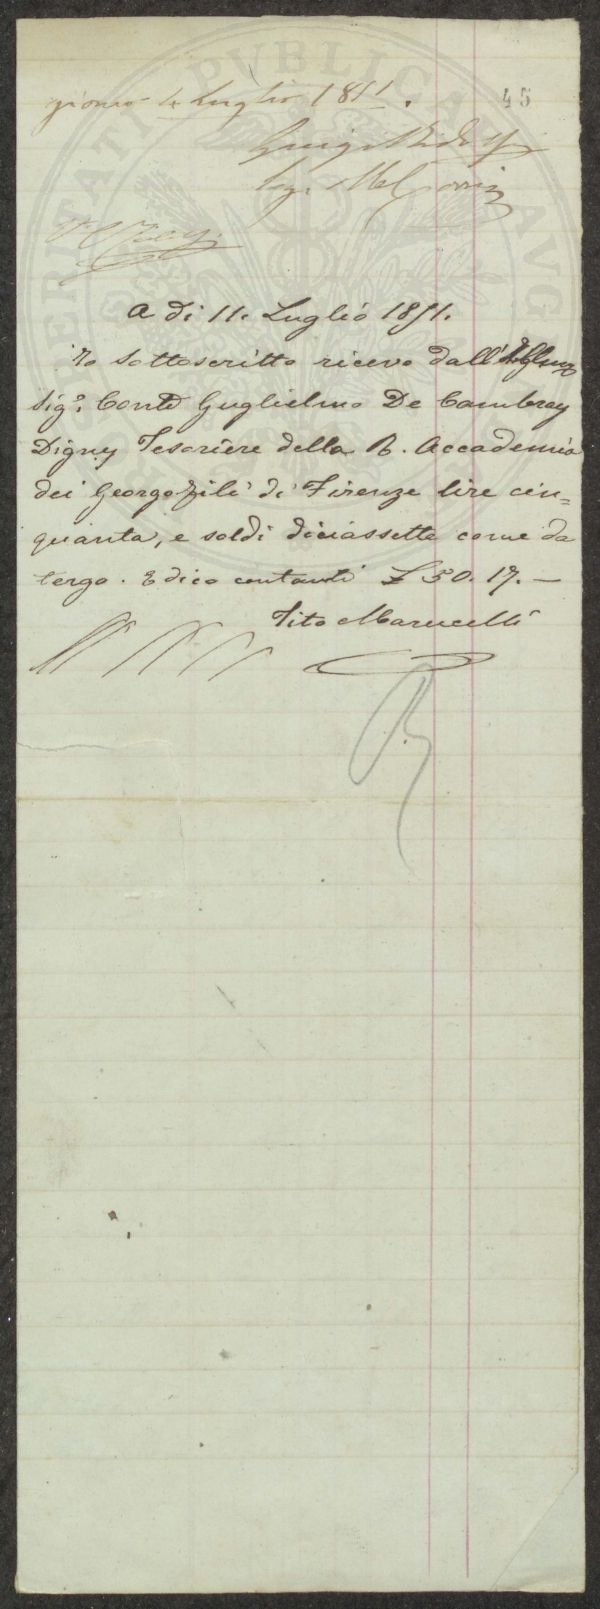 PVBLICAE
giorno 4 Luglio 1851.
45
Luigi Ridolfi
A dì 11. Luglio 1851.
Io sottoscritto ricevo dall'Illmo
Sigr. Conte Guglielmo De Cambray
Digny Tesoriere della R. Accademia
dei Georgofili di Firenze lire cin=
quanta, e soldi diciassette come da
tergo. E dico contanti £ 50. 17. —
Tito Marucelli